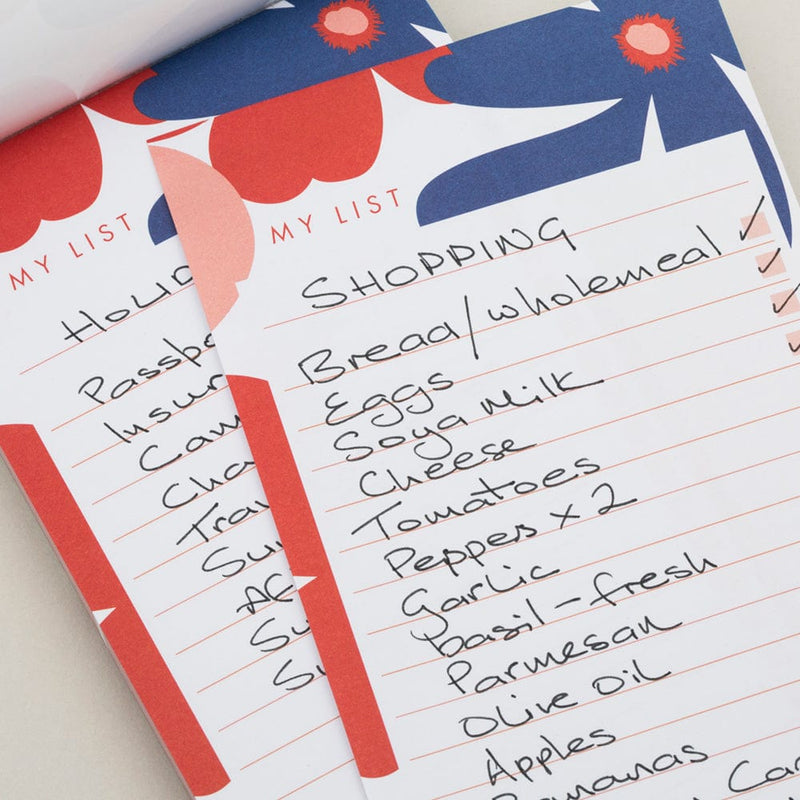 MY LIST
Passp
Insur
Cam
Cha
Trav
MY LIST
SHOPPING
Bread/wholemeal
Eggs
Soya Milk
Cheese
Tomatoes
Peppers x 2
Garlic
basil - fresh
Parmesan
Olive Oil
Apples
Bananas